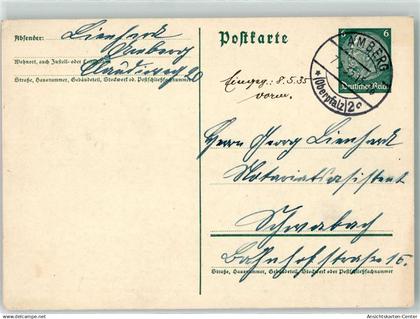 Absender: Lienhard
Amberg
Wohnort, auch Zustell- oder
Straße, Hausnummer, Gebäudeteil, Stockwerk od. Postschließfachnr.
Postkarte
6
Deutsches Reich
AMBERG
(Oberpfalz) 2
Eingeg.: 8.5.35
vorm.
Herrn Georg Lienhard
Notariatsassistent
Schwabach
Bahnhofstraße 15.
Straße, Hausnummer, Gebäudeteil, Stockwerk oder Postschließfachnummer
Ansichtskarten-Center